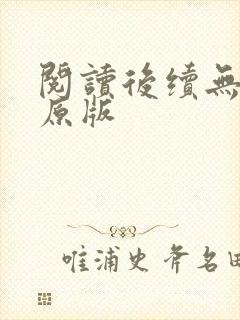 閱讀後續無
原版
唯浦史斧名田